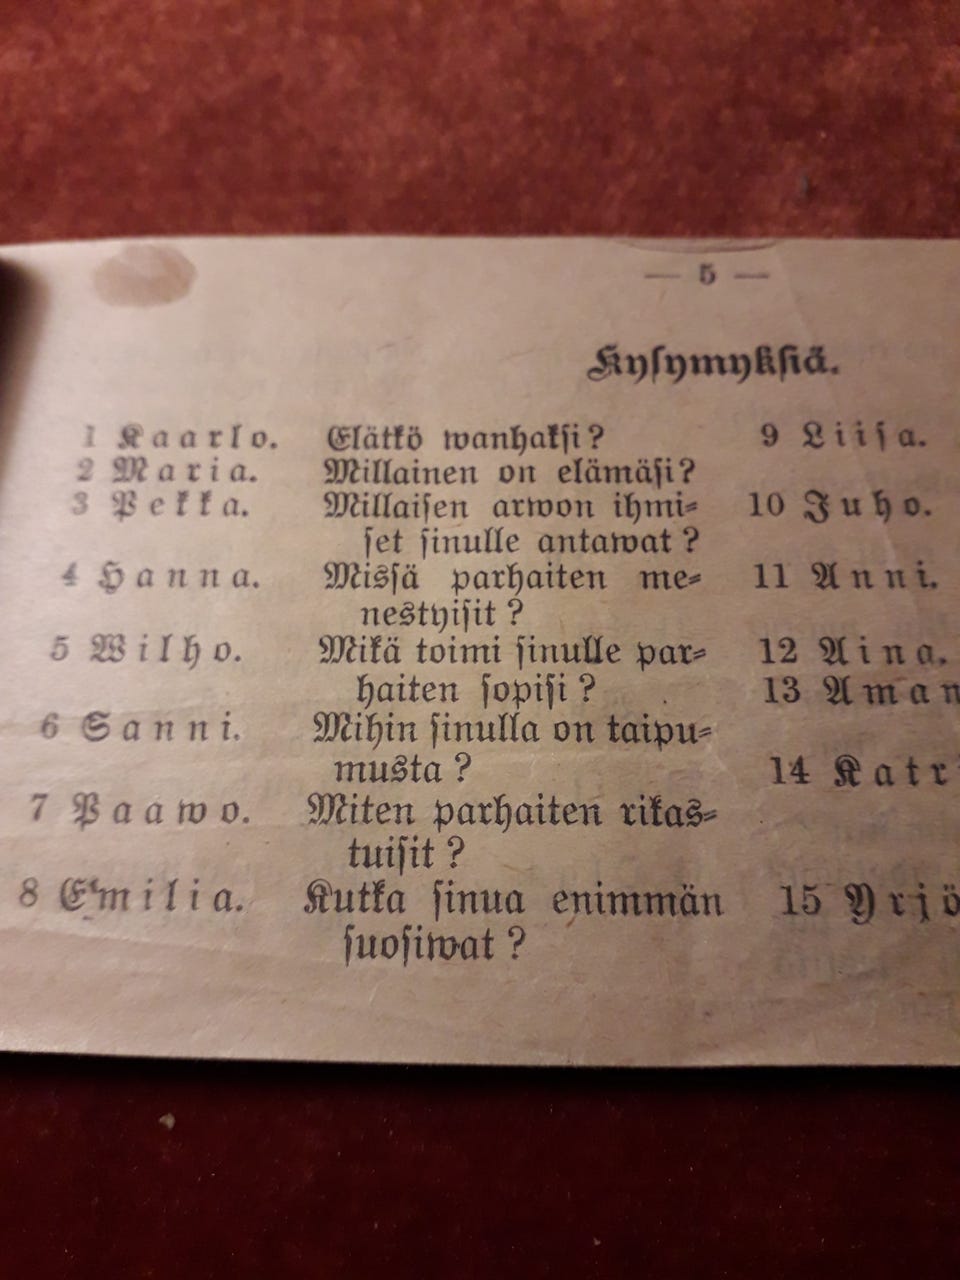 — 5 —
Kysymyksiä.
1 Kaarlo. Elätkö wanhaksi?
2 Maria. Millainen on elämäsi?
3 Pekka. Millaisen arwon ihmi-
set sinulle antawat?
4 Hanna. Missä parhaiten me-
nestyisit?
5 Wilho. Mikä toimi sinulle par-
haiten sopisi?
6 Sanni. Mihin sinulla on taipu-
musta?
7 Paawo. Miten parhaiten rikas-
tuisit?
8 Emilia. Kutka sinua enimmän
suosiwat?
9 Liisa.
10 Juho.
11 Anni.
12 Aina.
13 Aman
14 Katr
15 Yrjö